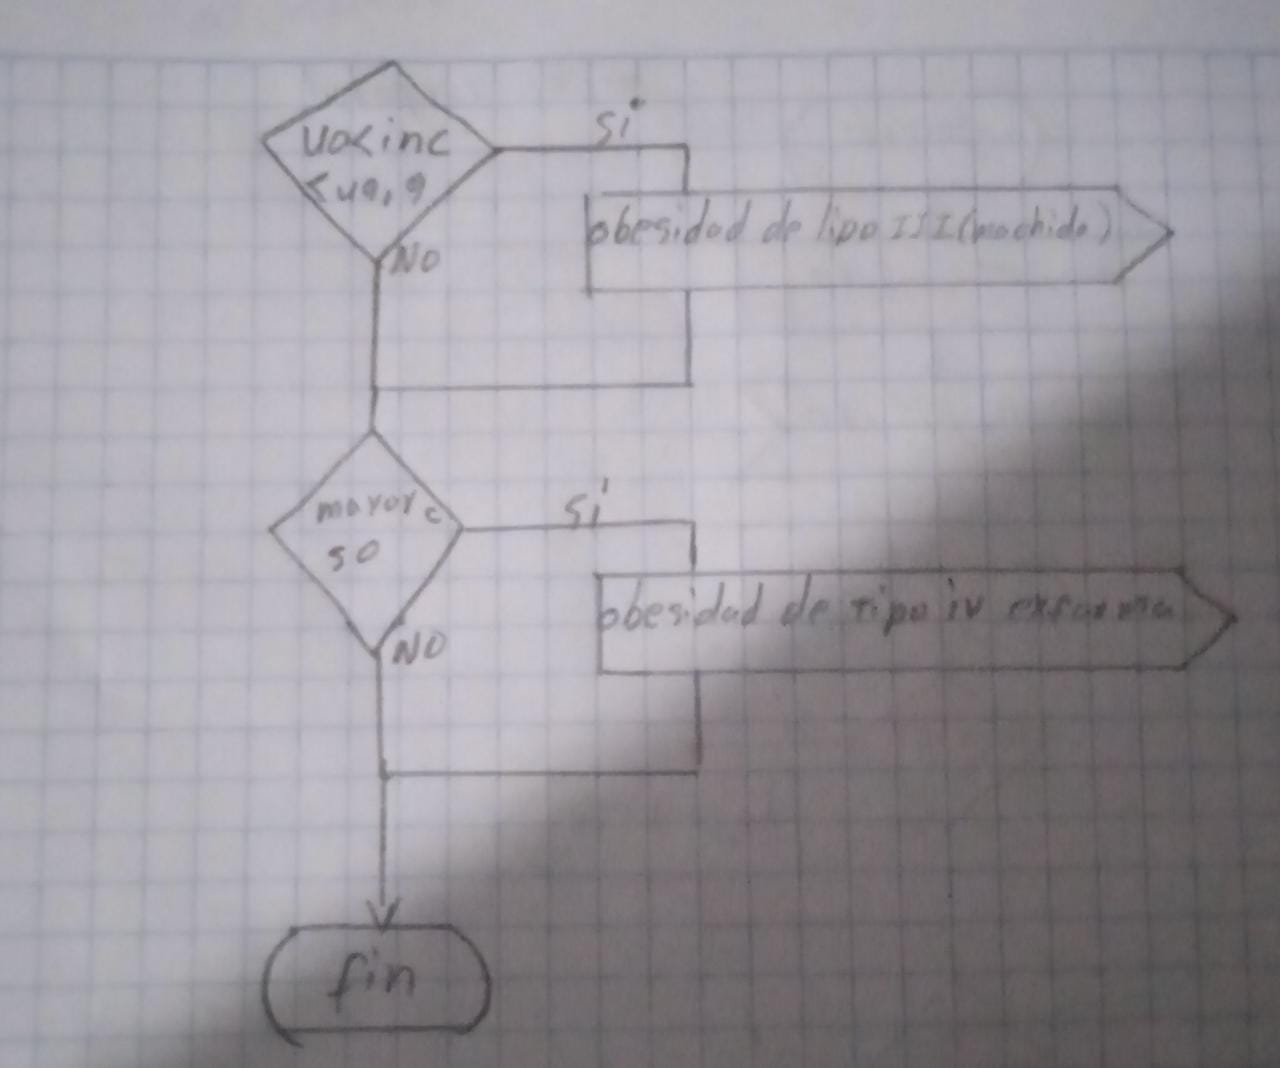 40<inc
<49,9
si
obesidad de tipo III (mochida)
NO
mayor c
50
si
obesidad de tipo iv
NO
fin